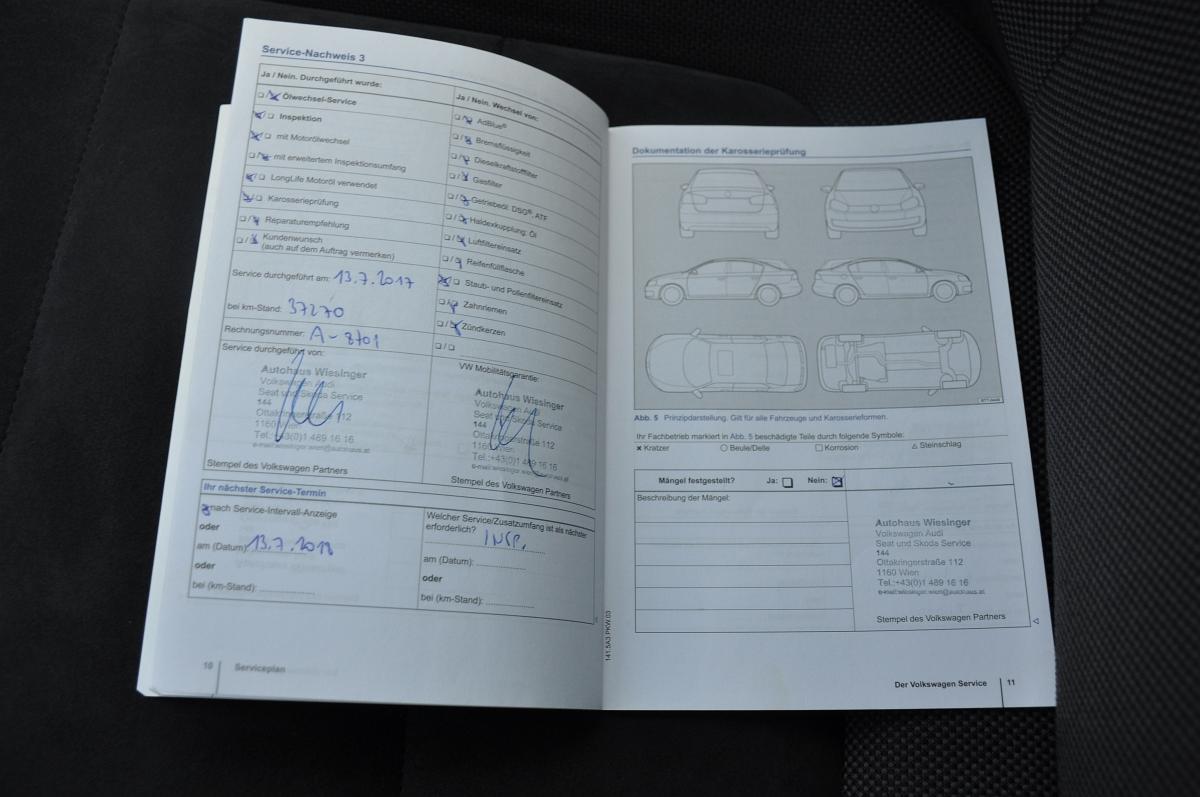 Service-Nachweis 3
Ja / Nein. Durchgeführt wurde:
Ölwechsel-Service
Inspektion
mit Motorölwechsel
mit erweitertem Inspektionsumfang
LongLife Motoröl verwendet
Karosserieprüfung
Reparaturempfehlung
Kundenwunsch
(auch auf dem Auftrag vermerken)
Service durchgeführt am: 13.7.2017
bei km-Stand: 37270
Rechnungsnummer: A-8701
Service durchgeführt von:
Autohaus Wiesinger
Volkswagen Audi
Seat und Skoda Service
144
Ottakringerstraße 112
1160 Wien
Tel.:+43(0)1 489 16 16
e-mail:wiesinger.wien@autohaus.at
Stempel des Volkswagen Partners
Ja / Nein. Wechsel von:
AdBlue®
Bremsflüssigkeit
Dieselkraftstofffilter
Gasfilter
Getriebeöl: DSG®, ATF
Haldexkupplung: Öl
Luftfiltereinsatz
Reifenfüllflasche
Staub- und Pollenfiltereinsatz
Zahnriemen
Zündkerzen
VW Mobilitätsgarantie:
Autohaus Wiesinger
Volkswagen Audi
Seat und Skoda Service
144
Ottakringerstraße 112
1160 Wien
Tel.:+43(0)1 489 16 16
e-mail:wiesinger.wien@autohaus.at
Stempel des Volkswagen Partners
Ihr nächster Service-Termin
nach Service-Intervall-Anzeige
oder
am (Datum): 13.7.2018
oder
bei (km-Stand):
Welcher Service/Zusatzumfang ist als nächster
erforderlich?
INSP.
am (Datum):
oder
bei (km-Stand):
10 Serviceplan
Dokumentation der Karosserieprüfung
Abb. 5 Prinzipdarstellung. Gilt für alle Fahrzeuge und Karosserieformen.
Ihr Fachbetrieb markiert in Abb. 5 beschädigte Teile durch folgende Symbole:
Kratzer Beule/Delle Korrosion Steinschlag
Mängel festgestellt? Ja: Nein:
Beschreibung der Mängel:
Autohaus Wiesinger
Volkswagen Audi
Seat und Skoda Service
144
Ottakringerstraße 112
1160 Wien
Tel.:+43(0)1 489 16 16
e-mail:wiesinger.wien@autohaus.at
Stempel des Volkswagen Partners
141.5A3.PKW.03
Der Volkswagen Service 11